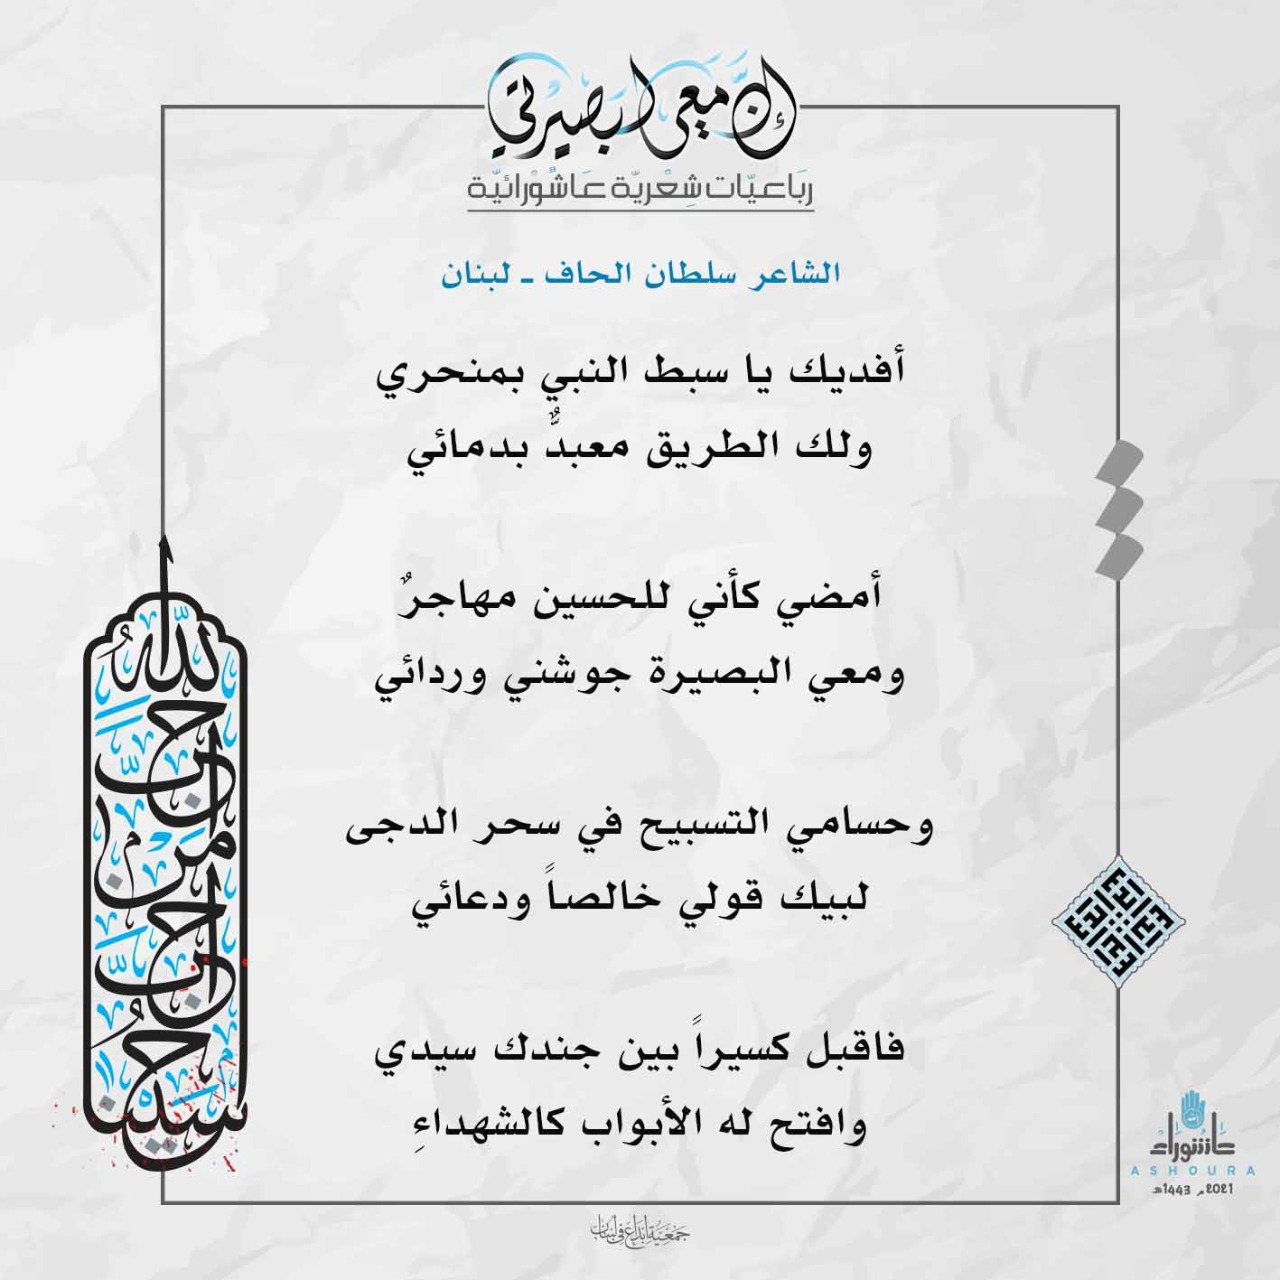 إنّ معي لبصيرتي
رباعيّات شِعْريّة عاشُوْرائيّة
الشاعر سلطان الحاف ـ لبنان
أفديك يا سبط النبي بمنحري
ولك الطريق معبدٌّ بدمائي
أمضي كأني للحسين مهاجرٌ
ومعي البصيرة جوشني وردائي
وحسامي التسبيح في سحر الدجى
لبيك قولي خالصاً ودعائي
فاقبل كسيراً بين جندك سيدي
وافتح له الأبواب كالشهداءِ
أحب الله من أحب حسينا
عاشوراء
ASHOURA
2021م 1443هـ
جمعية إبداع في لبنان